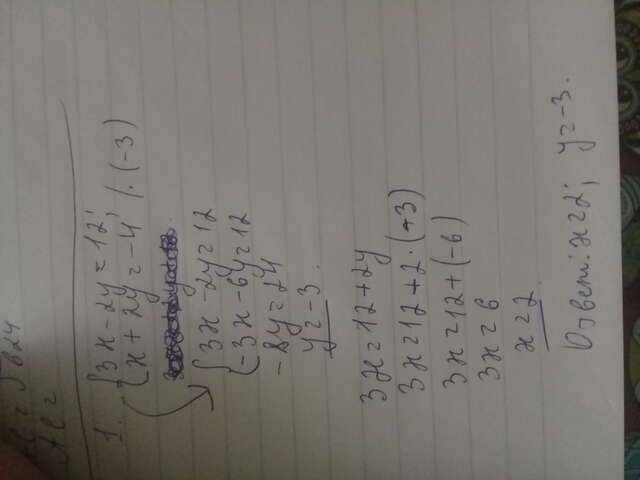 = √624
1. { 3x - 2y = 12;
x + 2y = -4 / · (-3)
{ 3x - 2y = 12
-3x - 6y = 12
-8y = 24
y = -3.
3x = 12 + 2y
3x = 12 + 2 · (-3)
3x = 12 + (-6)
3x = 6
x = 2.
Ответ: x = 2; y = -3.